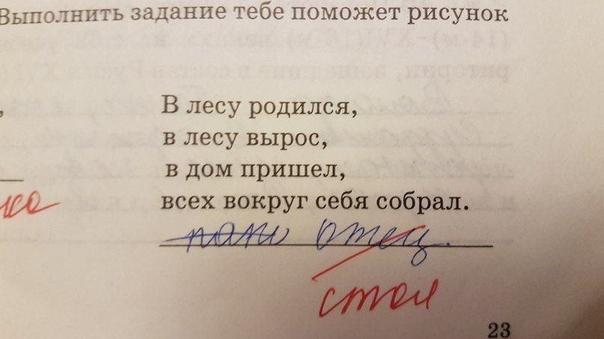 Выполнить задание тебе поможет рисунок
В лесу родился,
в лесу вырос,
в дом пришел,
всех вокруг себя собрал.
отец
стол
23